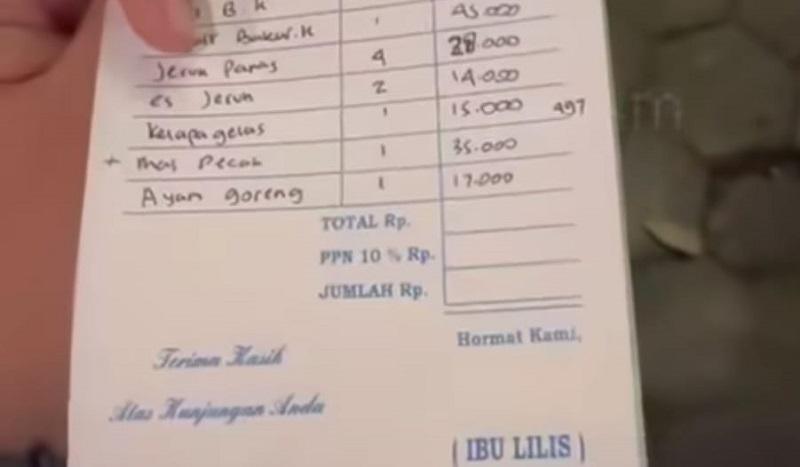 B.K 45.000
Bakar.K 1
Jeruk Panas 4 28.000
es Jeruk 2 14.000
Kelapa gelas 1 15.000 497
+ mas Pecak 1 35.000
Ayam goreng 1 17.000
TOTAL Rp.
PPN 10 % Rp.
JUMLAH Rp.
Hormat Kami,
Terima Kasih
Atas Kunjungan Anda
( IBU LILIS )